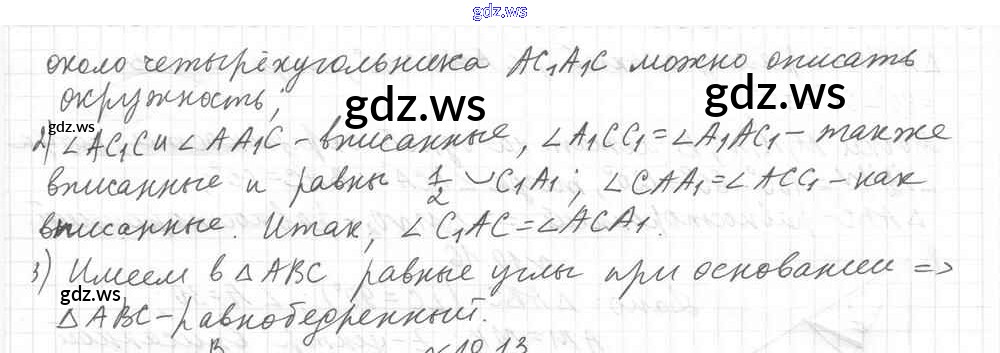 gdz.ws
около четырёхугольника AC₁A₁C можно описать
окружность;
gdz.ws
gdz.ws
gdz.ws
2) ∠AC₁C и ∠AA₁C – вписанные, ∠A₁CC₁ = ∠A₁AC₁ – также
вписанные и равны 1/2 ◡C₁A₁; ∠CAA₁ = ∠ACC₁ – как
вписанные. Итак, ∠C₁AC = ∠ACA₁.
3) Имеем в △ABC равные углы при основании =>
gdz.ws
△ABC – равнобедренный.